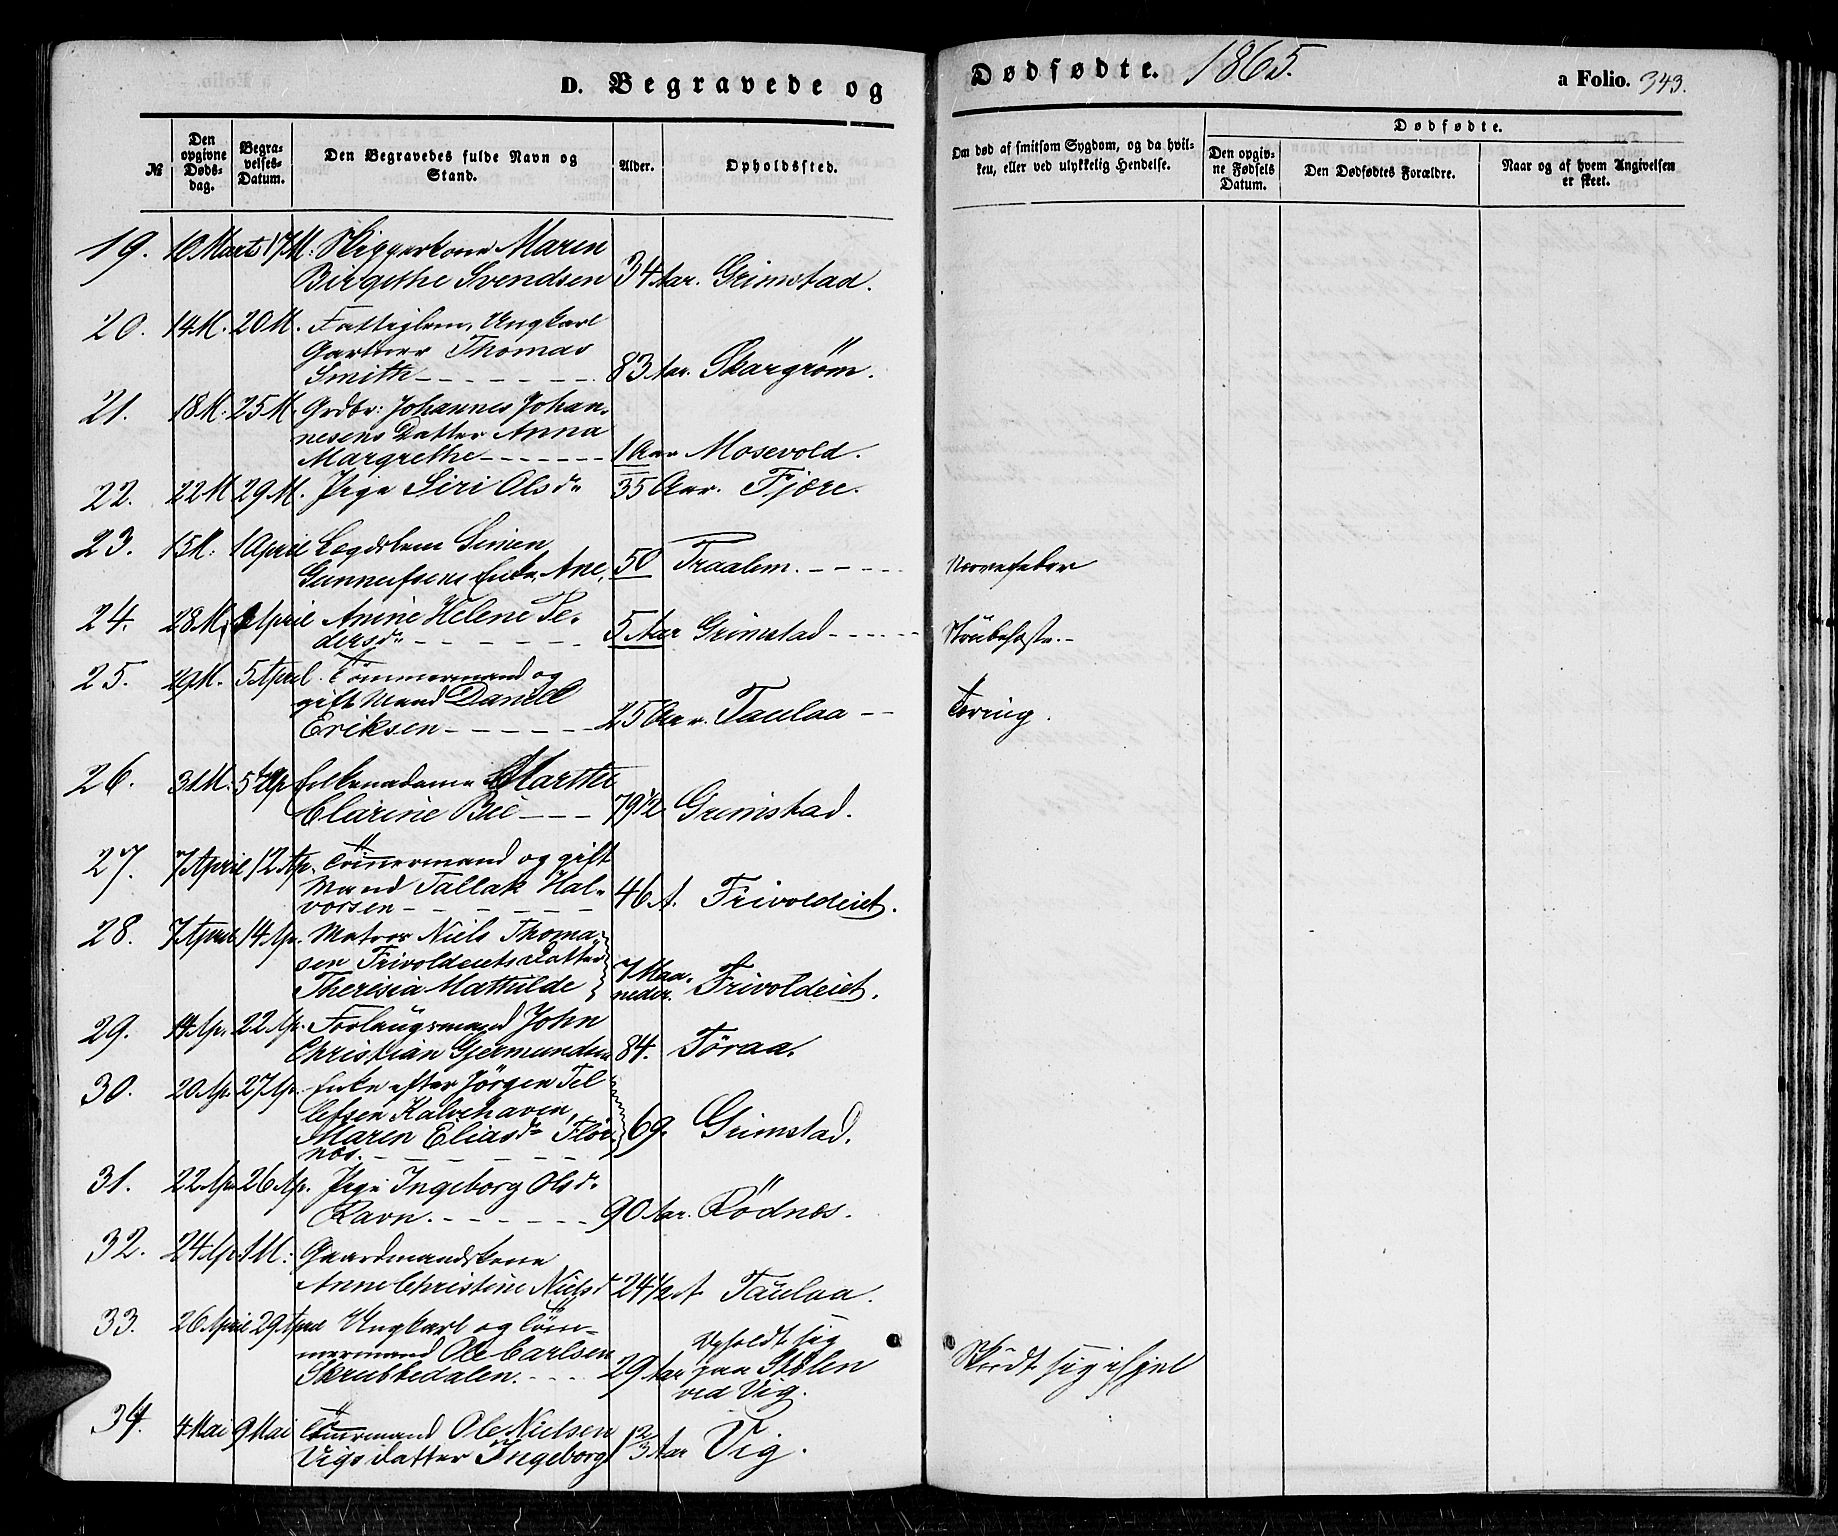 D. Begravede og
Dødfødte. 1865.
a Folio. 343.
№
Den opgivne Døds-dag.
Begra-velses-Datum.
Den Begravedes fulde Navn og Stand.
Alder.
Opholdssted.
Om død af smitsom Sygdom, og da hvil-ken, eller ved ulykkelig Hendelse.
Dødfødte.
Den opgiv-ne Fødsels Datum.
Den Dødfødtes Forældre.
Naar og af hvem Angivelsen er skeet.
19. 10 Marts 17 M: Skipperkone Maren
Birgethe Svendsen 34 Aar. Grimstad.
20. 14 M. 20 M. Fattiglem, Ungkarl
Gartner Thomas
Smith 83 Aar. Skargrøm.
21. 18 M. 25 M. Grdbr: Johannes Johan-
nesens Datter Anna
Margrethe 1 Aar Mosevold.
22. 22 M 29 M. Pige Siri Olsdr 35 Aar. Fjære.
23. 15 M: 1 April Lægdslem Simen
Gunnufsens Enke, Ane, 50 Traalem. Nervefeber
24. 28 M. April Anine Helene Pe-
dersdr 5 Aar Grimstad Strubehoste.
25. 29 M. 5 April. Tømmermand og
gift Mand Daniel
Eriksen 25 Aar. Taulaa Tæring.
26. 31 M. 5te Ap Enkemadame Marthe
Clarine Bie 79 1/2 Grimstad.
27. 7 April 12 Ap. Tømermand og gift
Mand Tallak Hal-
vorsen 46 A. Frivoldeiet.
28. 7 April 14 Ap. Matros Niels Thoma-
sen Frivoldeiets Datter
Theresia Mathilde 7 Maa-
neder. Frivoldeiet.
29. 14 Ap. 22 Ap. Forlaugsmand John
Christian Gjermundsen 84. Tøraa.
30. 20 Ap. 27 Ap. Enke efter Jørgen Tel
lefsen Kalvehaven,
Maren Eliasdr Flør
næs. 69. Grimstad.
31. 22 Ap 26 Ap. Pige Ingeborg Olsdr
Ravn. 90 Aar. Rødnes.
32. 24 Ap. 1 M: Gaardmandskone
Anne Christine Nielsd 24 1/2 A Taulaa.
33. 26 April 29 April Ungkarl og Tøm-
mermand Ole Carlsen
Skrubbedalen. 29 Aar
Opholdt sig
paa Stølen
ved Vig.
Skødt sig ihjel
34. 4 Mai 9 Mai Tømermand Ole Nielsen
Vigs Datter Ingeborg 1 2/3 Aar Vig.